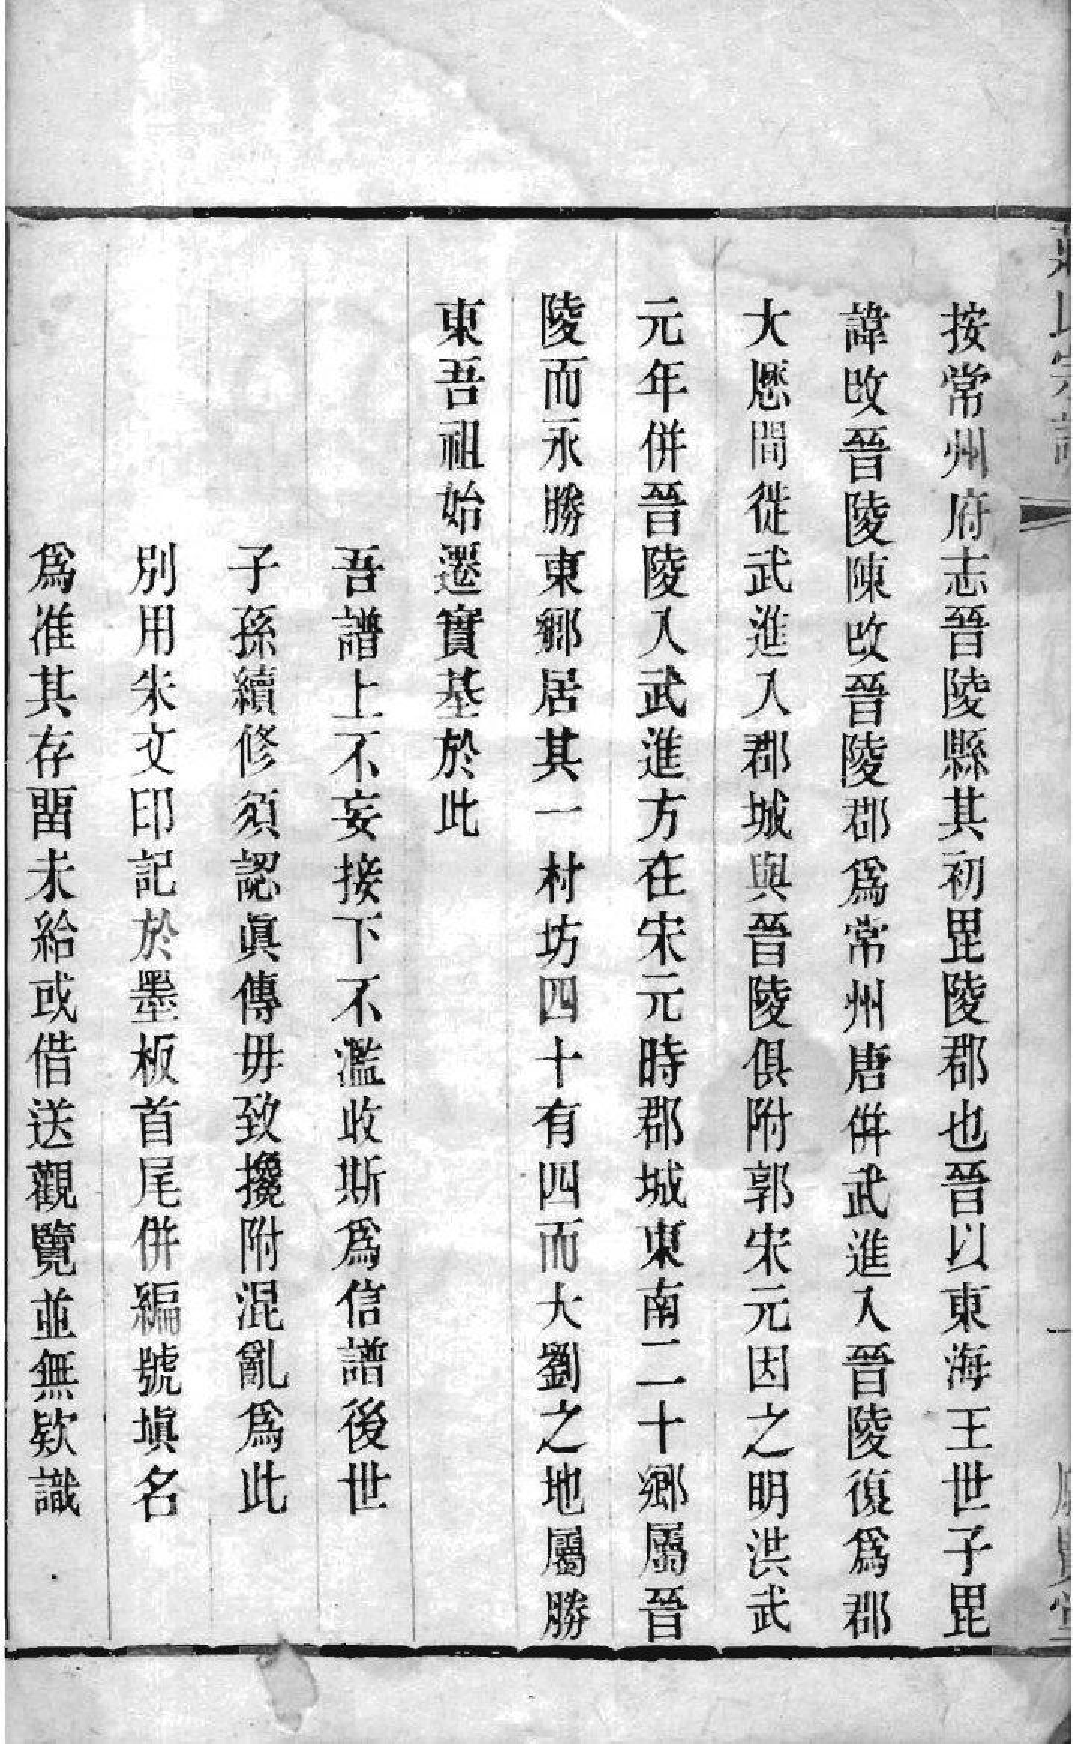 氏宗譜
按常州府志晉陵縣其初毘陵郡也晉以東海王世子毘
諱改晉陵陳改晉陵郡爲常州唐併武進入晉陵復爲郡
大歷間徙武進入郡城與晉陵俱附郭宋元因之明洪武
元年併晉陵入武進方在宋元時郡城東南二十鄉屬晉
陵而永勝東鄉居其一村坊四十有四而大劉之地屬勝
東吾祖始遷實基於此
吾譜上不妄接下不濫收斯爲信譜後世
子孫續修須認眞傳毋致攙附混亂爲此
別用朱文印記於墨板首尾併編號塡名
爲准其存畱未給或借送觀覽並無欵識